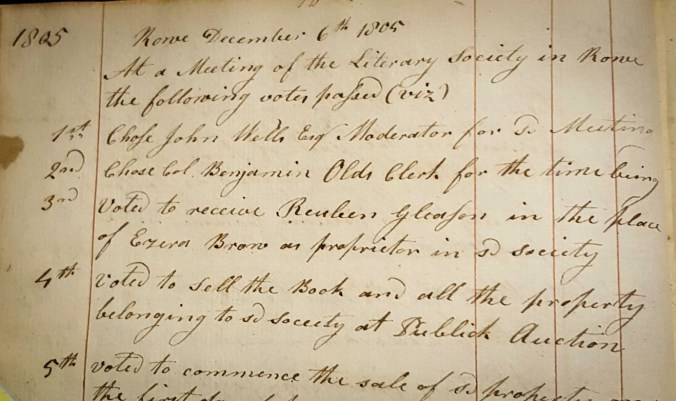 1805 Rowe December 6th 1805
At a Meeting of the Literary Society in Rowe
the following votes passed (viz)
1st Chose John Wells Esq Moderator for sd Meeting
2nd Chose Col. Benjamin Olds Clerk for the time being
3rd Voted to receive Reuben Gleason in the place
of Ezera Brow as proprietor in sd society
4th Voted to sell the Book and all the property
belonging to sd society at Publick Auction
5th voted to commence the sale of sd property
the first